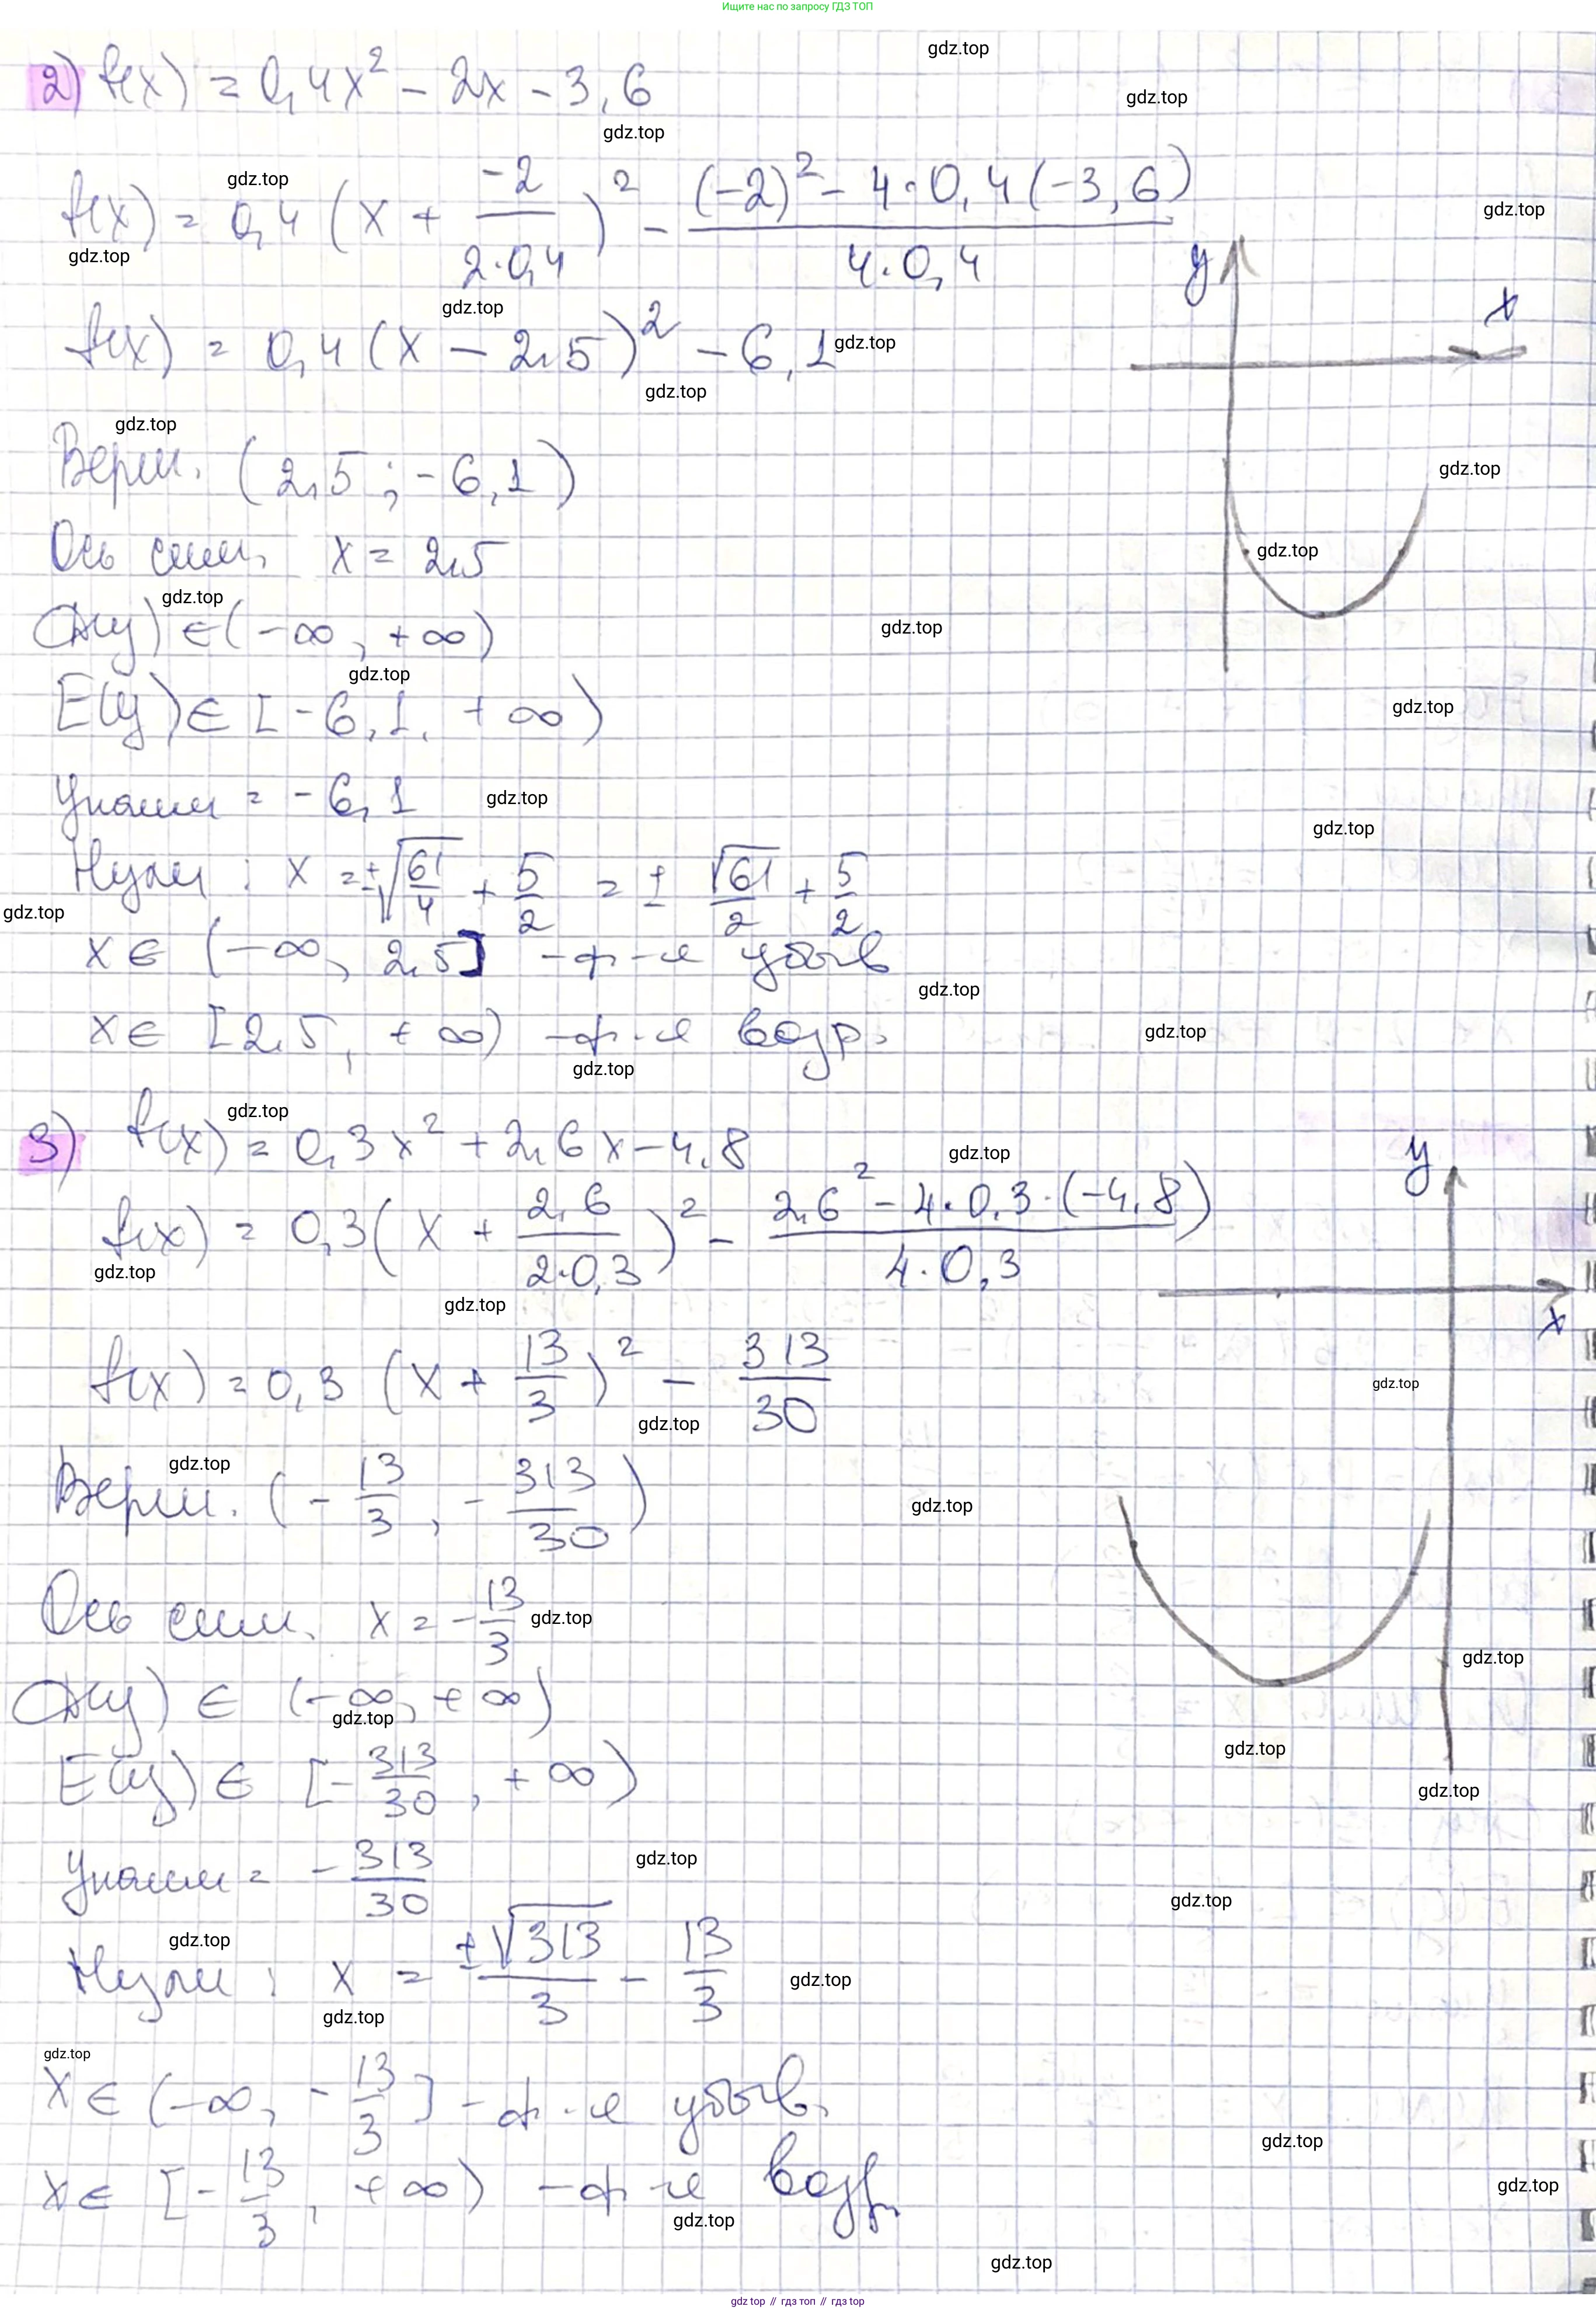 Ищите нас по запросу ГДЗ ТОП
gdz.top
2) f(x) = 0,4x² - 2x - 3,6
gdz.top
gdz.top
f(x) = 0,4 (x + -2/(2·0,4))² - ((-2)² - 4·0,4(-3,6))/(4·0,4)
gdz.top
gdz.top
gdz.top
y
x
gdz.top
f(x) = 0,4 (x - 2,5)² - 6,1
gdz.top
gdz.top
gdz.top
Верш. (2,5; -6,1)
gdz.top
Ось сим. x = 2,5
gdz.top
gdz.top
D(y) ∈ (-∞, +∞)
gdz.top
gdz.top
E(y) ∈ [-6,1, +∞)
gdz.top
yнаим = -6,1
gdz.top
gdz.top
Нули: x = ±√(61/4) + 5/2 = ± √61/2 + 5/2
gdz.top
x ∈ (-∞, 2,5] - ф-я убыв
gdz.top
x ∈ [2,5, +∞) - ф-я возр.
gdz.top
gdz.top
gdz.top
3) f(x) = 0,3x² + 2,6x - 4,8
gdz.top
y
f(x) = 0,3 (x + 2,6/(2·0,3))² - (2,6² - 4·0,3·(-4,8))/(4·0,3)
gdz.top
gdz.top
x
f(x) = 0,3 (x + 13/3)² - 313/30
gdz.top
gdz.top
gdz.top
Верш. (-13/3, -313/30)
gdz.top
Ось сим. x = -13/3
gdz.top
gdz.top
D(y) ∈ (-∞, +∞)
gdz.top
gdz.top
E(y) ∈ [-313/30, +∞)
gdz.top
yнаим = -313/30
gdz.top
gdz.top
gdz.top
Нули: x = ±√313/3 - 13/3
gdz.top
gdz.top
gdz.top
x ∈ (-∞, -13/3] - ф-я убыв.
gdz.top
x ∈ [-13/3, +∞) - ф-я возр.
gdz.top
gdz.top
gdz.top
gdz.top // гдз топ // гдз.top